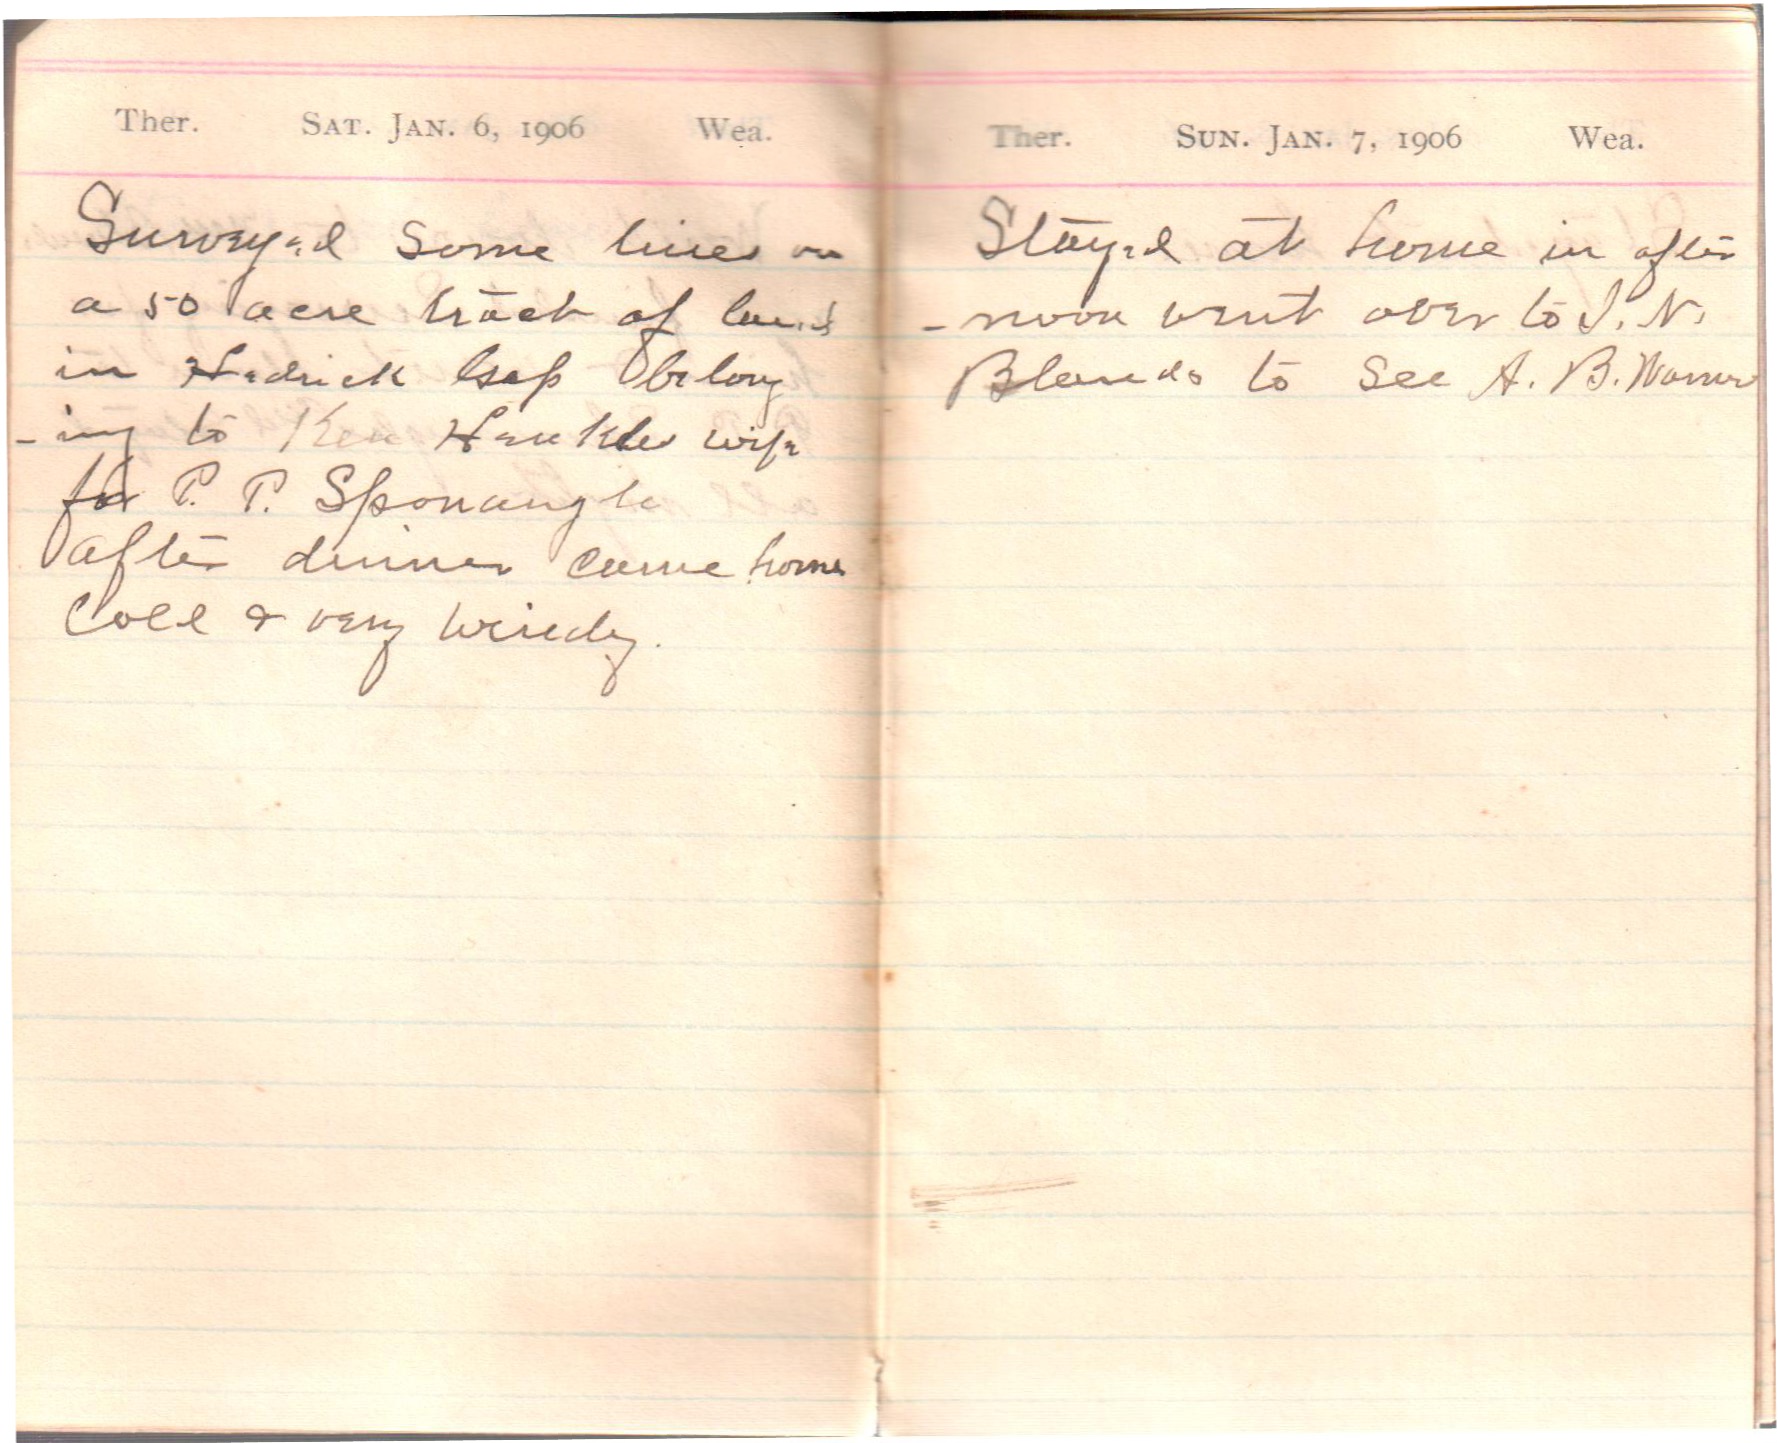 Ther. SAT. JAN. 6, 1906 Wea.
Surveyed some lines on
a 50 acre track of land
in Hedrick Gap belong
-ing to Ken Henkles wife
for P. P. Sponaugle
after dinner came home
Cold & very windy.
Ther. SUN. JAN. 7, 1906 Wea.
Stayed at home in after
-noon went over to I. N.
Blands to see A. B.